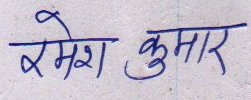 रमेश कुमार